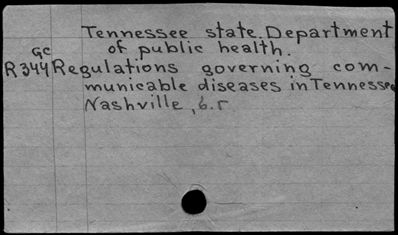 Tennessee state. Department
of public health.
GC
R344 Regulations governing com-
municable diseases in Tennessee
Nashville,